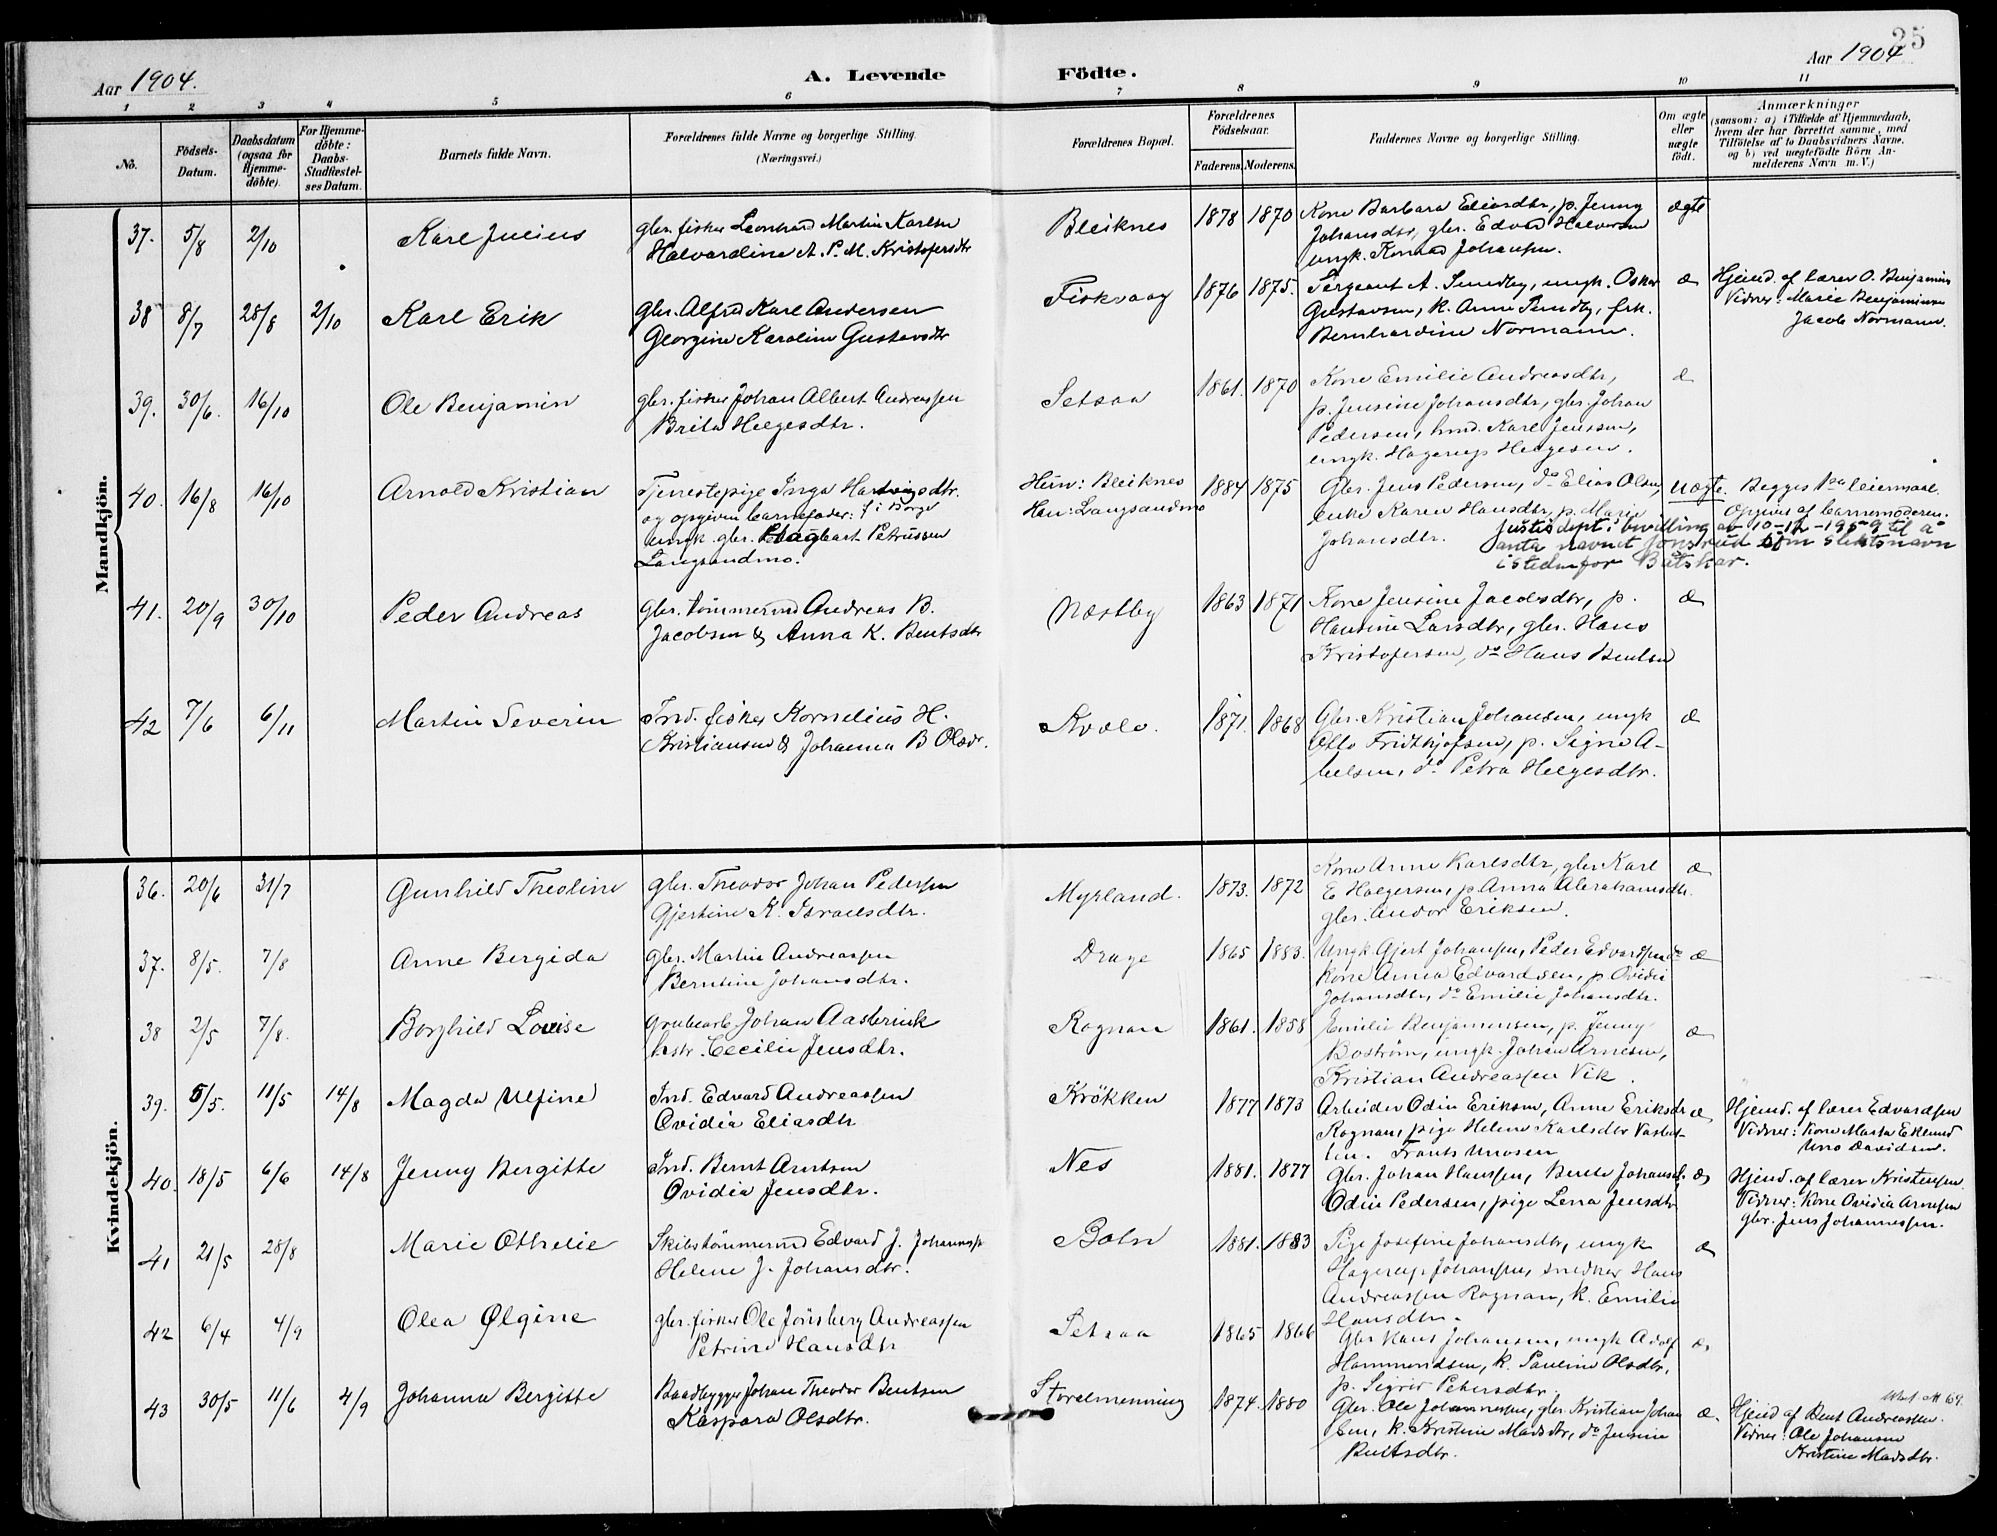 25
Aar 1904.
A. Levende Födte.
Aar 1904
1 2 3 4 5 6 7 8 9 10 11
No.
Födsels-
Datum.
Daabsdatum
(ogsaa for
Hjemme-
döbte).
For Hjemme-
döbte:
Daabs-
Stadfæstel-
ses Datum.
Barnets fulde Navn.
Forældrenes fulde Navne og borgerlige Stilling.
(Næringsvei.)
Forældrenes Bopæl.
Forældrenes
Födselsaar.
Faderens. Moderens.
Faddernes Navne og borgerlige Stilling.
Om ægte
eller
uægte
födt.
Anmærkninger
(saasom: a) i Tilfælde af Hjemmedaab,
hvem der har forrettet samme, med
Tilföielse af to Daabsvidners Navne.
og b) ved uægtefödte Börn An-
melderens Navn m. V.)
Mandkjön.
37. 5/8 2/10 Karl Julius
gbr. fisker Leonhard Martin Karlsen
Halvardine A. P. M. Kristofersdtr
Bleiknes 1878 1870
Kone Barbara Eliasdtr, p. Jenny
Johansdtr, gbr. Edvard Halvorsen
ungk. Konrad Johansen.
ægte
38 8/7 28/8 2/10 Karl Erik
gbr. Alfred Karl Andersen
Georgine Karoline Gustavsdtr
Fiskvaag 1876 1875.
Sergeant A. Sundby, ungk. Oskar
Gustavsen, k. Anne Sundby, frk.
Bernhardine Normann.
æ
Hjemd. af lærer O. Benjamins
Vidner: Marie Benjaminsen
Jacob Normann.
39. 30/6. 16/10 Ole Benjamin
gbr. fisker Johan Albert Andreassen
Brita Helgesdtr.
Setsaa 1861. 1870
Kone Emilie Andreasdtr,
p. Jensine Johansdtr, gbr. Johan
Pedersen, hmd. Karl Jenssen,
ungk. Hagerup Helgesen.
æ
40. 16/8 16/10 Arnold Kristian
Tjenestepige Inga Hartvigsdtr.
og opgiven barnefader: f. i Borge
ungk. gbr. Hagbart Petrussen
Langsandmo.
Hun: Bleiknes
Han: Langsandmo
1884 1875
Gbr. Jens Pedersen, do Elias Olsen,
enke Karen Hansdtr, p. Marie
Johansdtr.
uægte.
Begges 1ste leiermaal.
Opgivet af barnemoderen.
Justisdept.'s bevilling av 10-12-1959 til å
anta navnet Jonsrud som slektsnavn
istedenfor Båtskar.
41. 20/9 30/10 Peder Andreas
gbr. tömmermd Andreas B.
Jacobsen & Anna K. Bentsdtr
Næstby 1863 1871
Kone Jensine Jacobsdtr, p.
Hansine Larsdtr, gbr. Hans
Kristofersen, do Hans Bentsen
æ
42 7/6 6/11 Martin Severin
Ind. fisker Kornelius H.
Kristiansen & Johanna B Olsdr.
Kvæle. 1871. 1868
Gbr. Kristian Johansen, ungk
Otto Fridthjofsen, p. Signe A-
belsen, do Petra Helgesdtr.
æ
Kvindekjön.
36. 20/6 31/7 Gunhild Theoline
gbr. Theodor Johan Pedersen
Gjertine K. Israelsdtr.
Myrland. 1873. 1872
Kone Anne Karlsdtr, gbr Karl
E Holgersen, p. Anna Abrahamsdtr.
gbr. Andor Eriksen.
æ
37. 8/5. 7/8 Anne Bergida
gbr. Martin Andreassen
Berntine Johansdtr.
Drage 1865 1883.
Ungk Gjert Johansen, Peder Edvardsen do
Kone Anna Edvardsen, p. Ovidie
Johansdtr, do Emilie Johansdtr.
æ
38 2/5 7/8. Borghild Louise
Grubearb. Johan Aasbrink
hstr. Cecilie Jensdtr.
Rognan 1861. 1858
Emilie Benjaminsen, p. Jenny
Boström, ungk. Johan Arnesen,
Kristian Andreassen Vik.
æ
39. 5/5. 11/5 14/8 Magda Ulfine
Ind. Edvard Andreassen
Ovidia Eliasdtr
Krökken 1877 1873
Arbeider Odin Eriksen, Anne Eriksdtr
Rognan, pige Helene Karlsdtr
Frants Unosen
æ
Hjemd. af lærer Edvardsen
Vidner: Kone Marta Eklund
Uno Davidsen.
40. 18/5 6/6 14/8 Jenny Bergitte
Ind. Bernt Arntsen
Ovidia Jensdtr.
Nes 1881. 1877
Gbr. Johan Hansen, Berte Johansd.
Odin Pedersen, pige Lena Jensdtr
æ
Hjemd. af lærer Kristensen
Vidner: Kone Ovidia Arnesen
gbr. Jens Johannessen.
41 21/5 28/8 Marie Othelie
Skibstömmermd Edvard J. Johannss
Helene J. Johansdtr.
Botn 1881. 1883
Pige Josefine Johansdtr, ungk
Hagerup Johansen, snedker Hans
Andreassen Rognan, k. Emilie
Hansdtr.
æ
42 6/4 4/9 Olea Ølgine
gbr. fisker Ole Jönsberg Andreassen
Petrine Hansdtr
Setsaa 1865 1866
Gbr Hans Johansen, ungk Adolf
Hammundsen, k. Pauline Olsdtr,
p. Sigrid Petersdtr.
æ
43 30/5 11/6 4/9 Johanna Bergitte
Baadbygger Johan Theodor Bentsen
Kaspara Olsdtr.
Storalmenning 1874. 1880
Gbr. Ole Johannessen, gbr. Kristian Johan
sen, k. Kristine Madsdtr, do Jensine
Bentsdtr.
æ.
Hjemd af Bent Andreassen.
Vidner: Ole Johansen
Kristine Madsdtr.